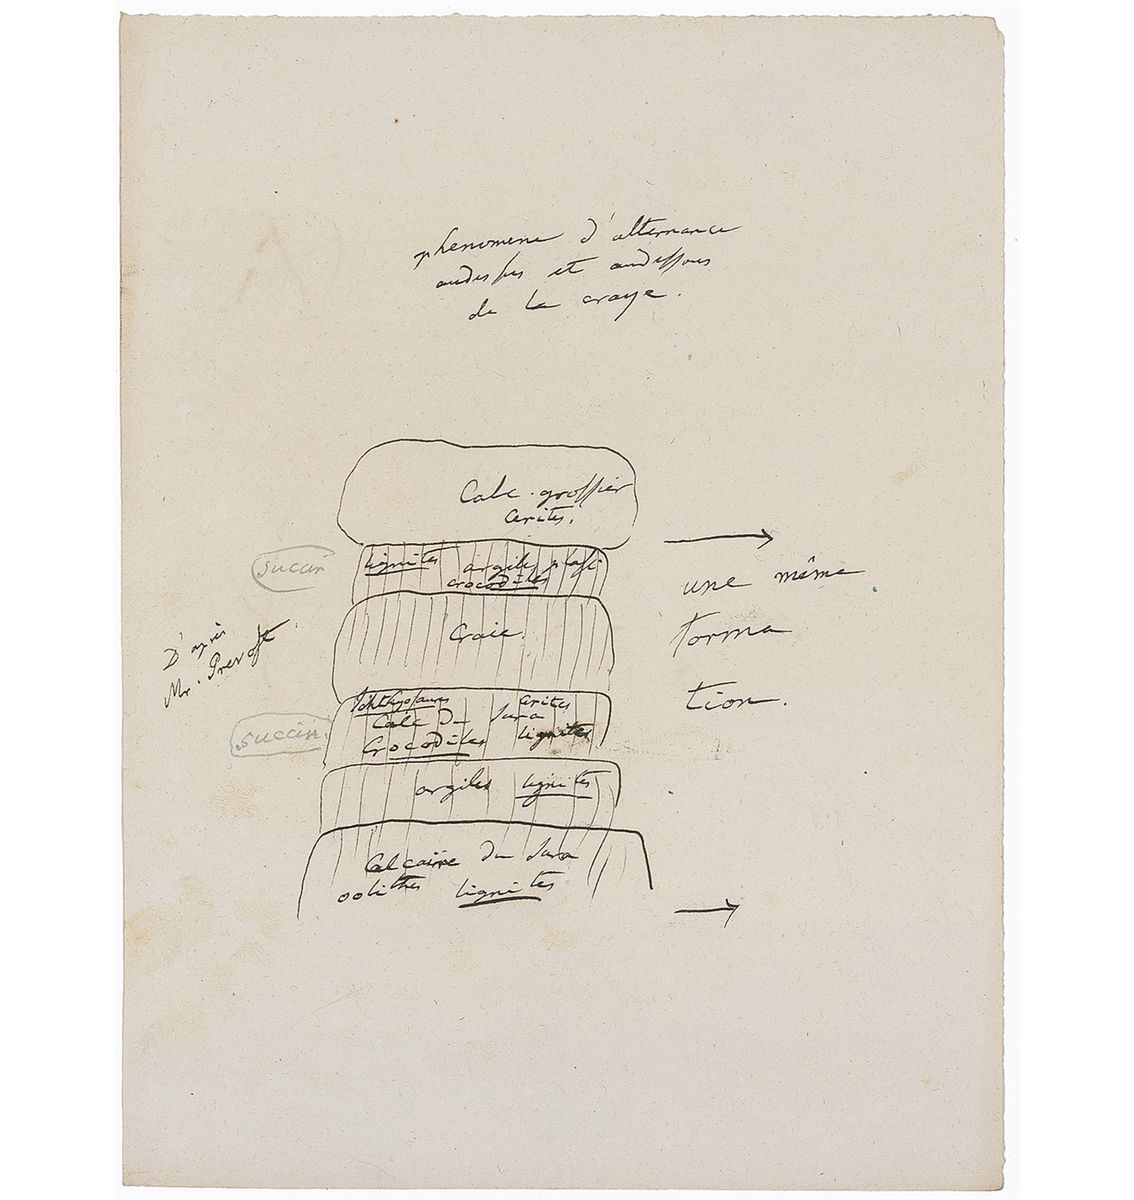 phenomene d'alternance
audessus et audessous
de la craye.
Calc. grossier
cerites.
lignites argiles plast.
crocodiles
succin
Craie.
une même
forma
tion.
D'après
Mr. Prevost.
Ichthyosaures cerites
Calc du Jura
Crocodiles lignites
succin.
argiles lignites
Calcaire du Jura
oolithes lignites